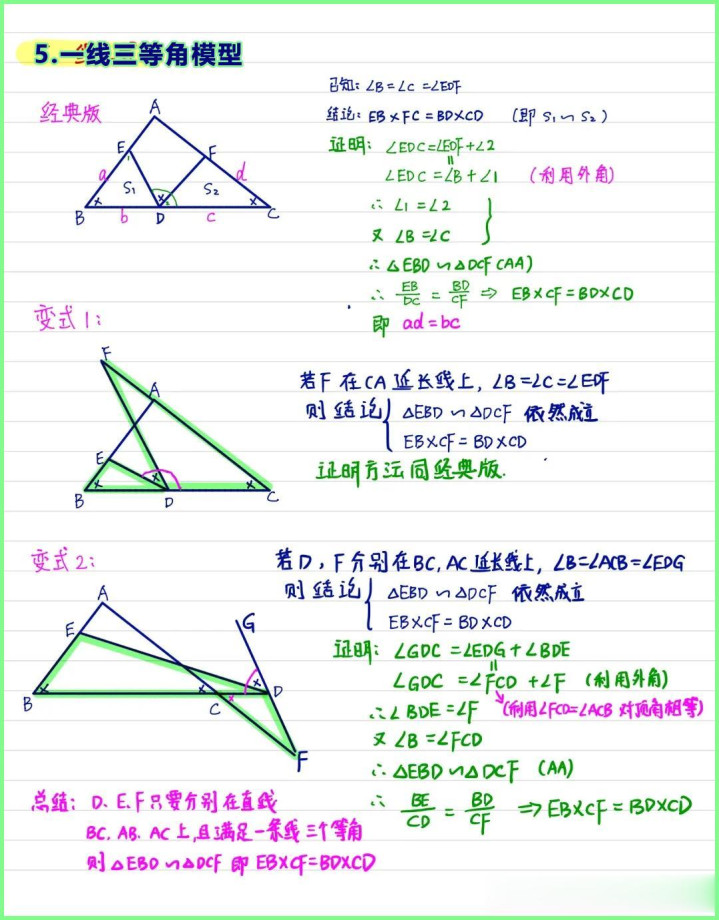 5.一线三等角模型
经典版
A
E
F
a
d
1
S₁
S₂
×
×
×
2
B
b
D
c
C
已知: ∠B=∠C=∠EDF
结论: EB×FC=BD×CD (即 S₁∽S₂)
证明: ∠EDC=∠EDF+∠2
=
∠EDC=∠B+∠1 (利用外角)
∴ ∠1=∠2
又 ∠B=∠C
∴ △EBD∽△DCF(AA)
∴ EB/DC = BD/CF ⇒ EB×CF=BD×CD
即 ad=bc
变式1:
F
A
E
×
×
×
B
D
C
若F在CA延长线上, ∠B=∠C=∠EDF
则结论{ △EBD∽△DCF 依然成立
EB×CF=BD×CD
证明方法同经典版.
变式2:
A
E
G
×
×
×
×
B
C
D
F
若D,F分别在BC,AC延长线上, ∠B=∠ACB=∠EDG
则结论{ △EBD∽△DCF 依然成立
EB×CF=BD×CD
证明: ∠GDC=∠EDG+∠BDE
=
∠GDC=∠FCD+∠F (利用外角)
∴∠BDE=∠F (利用∠FCD=∠ACB 对顶角相等)
又 ∠B=∠FCD
∴ △EBD∽△DCF (AA)
∴ BE/CD = BD/CF ⇒EB×CF=BD×CD
总结: D、E、F只要分别在直线
BC, AB, AC上,且满足一条线三个等角
则△EBD∽△DCF 即 EB×CF=BD×CD